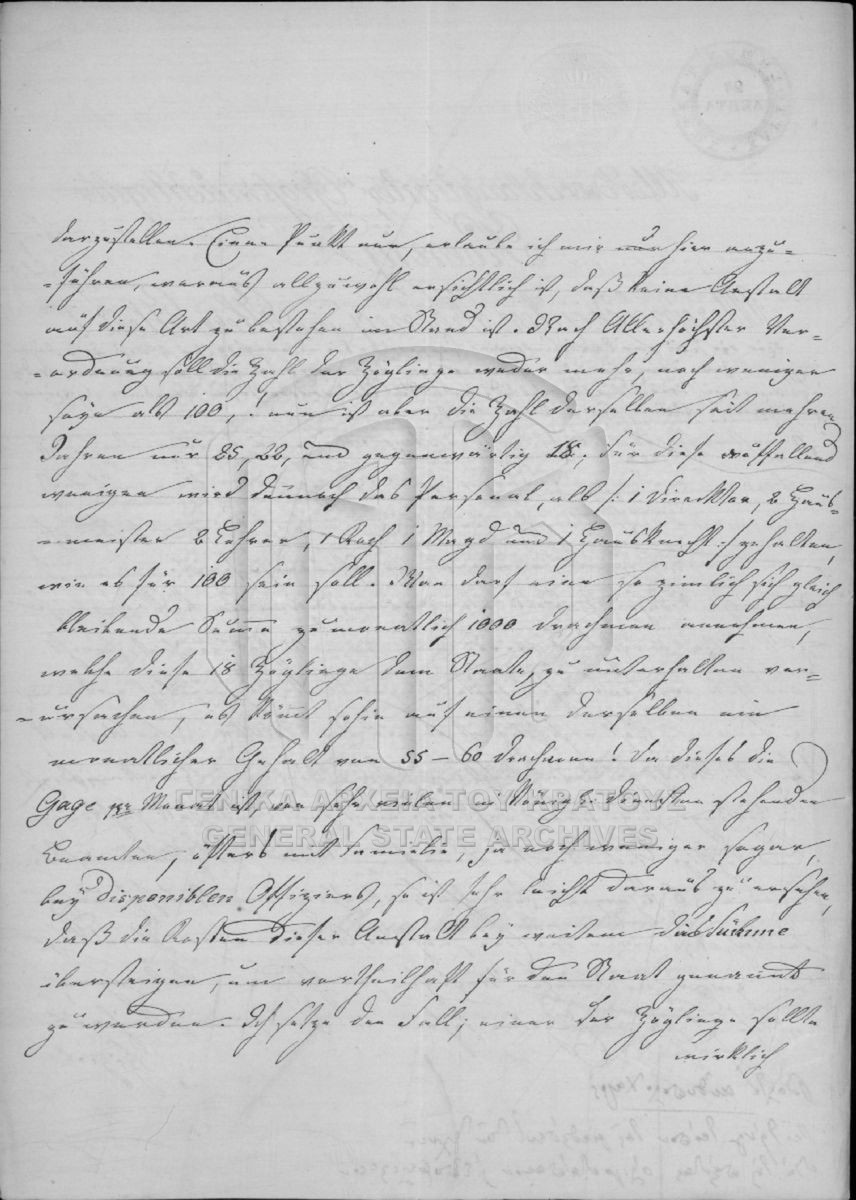 darzustellen. Einen Punkt nur, erlaube ich mir hier anzu-
-führen, woraus allzuwohl ersichtlich ist, daß keine Anstalt
auf diese Art zu bestehen im Stand ist. Nach Allerhöchster Ver-
-ordnung soll die Zahl der Zöglinge weder mehr, noch weniger
seyn als 100,! nun ist aber die Zahl derselben seit mehren
Jahren nur 25, 22, und gegenwärtig 18; für diese auffallend
wenigen wird dennoch das Personal, als /: 1 Direcktor, 2 Haus-
-meister 2 Lehrer, 1 Koch 1 Magd und 1 Hausknecht :/ gehalten,
wie es für 100 sein soll. Man darf eine so zimlich sich gleich
bleibende Summe zu monatlich 1000 Drachmen annehmen,
welche diese 18 Zöglinge dem Staate, zu unterhalten ver-
-ursachen, es kömt sohin auf einen derselben ein
monatlicher Gehalt von 55 – 60 Drachmen! Da dieses die
Gage per Monat ist, von sehr vielen in Königl: Diensten stehenden
Beamten, öfters mit Familie, ja noch weniger sogar,
bey disponiblen Offiziers, so ist sehr leicht daraus zu ersehen,
daß die Kosten dieser Anstalt bey weitem die Sume
übersteigen, um vortheilhaft für den Staat genannt
zu werden. Ich setze den Fall; einer der Zöglinge sollte
wirklich
ΓΕΝΙΚΑ ΑΡΧΕΙΑ ΤΟΥ ΚΡΑΤΟΥΣ
GENERAL STATE ARCHIVES